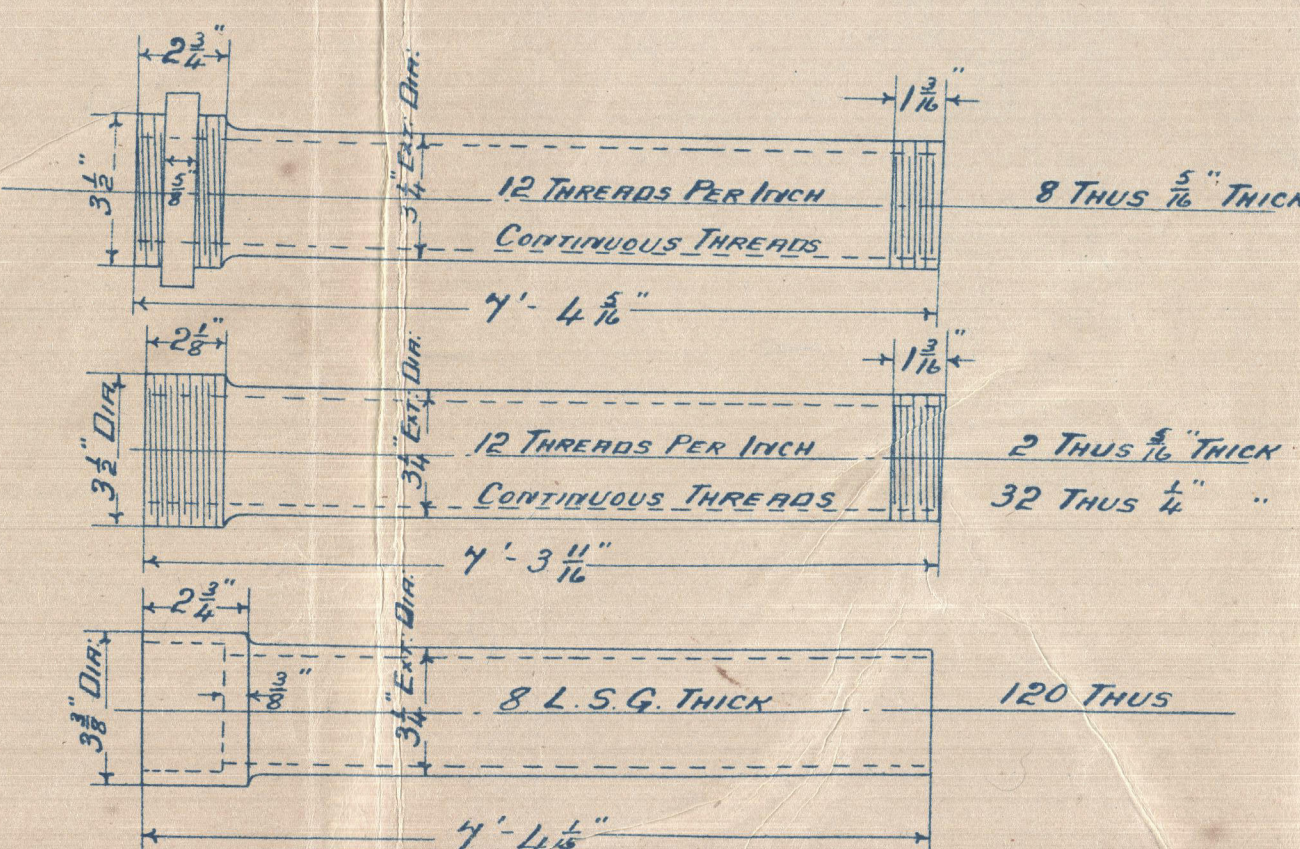 2 3/4"
1 3/16"
3 1/2"
5/8"
3 1/4" EXT: DIA:
12 THREADS PER INCH
CONTINUOUS THREADS
8 THUS 5/16" THICK
7'- 4 5/16"
2 1/8"
1 3/16"
3 1/2" DIA.
3 1/4" EXT: DIA:
12 THREADS PER INCH
CONTINUOUS THREADS
2 THUS 5/16" THICK
32 THUS 1/4" "
7'- 3 11/16"
2 3/4"
3 3/8" DIA:
3/8"
3 1/4" EXT: DIA:
8 L.S.G. THICK
120 THUS
7'- 4 1/16"